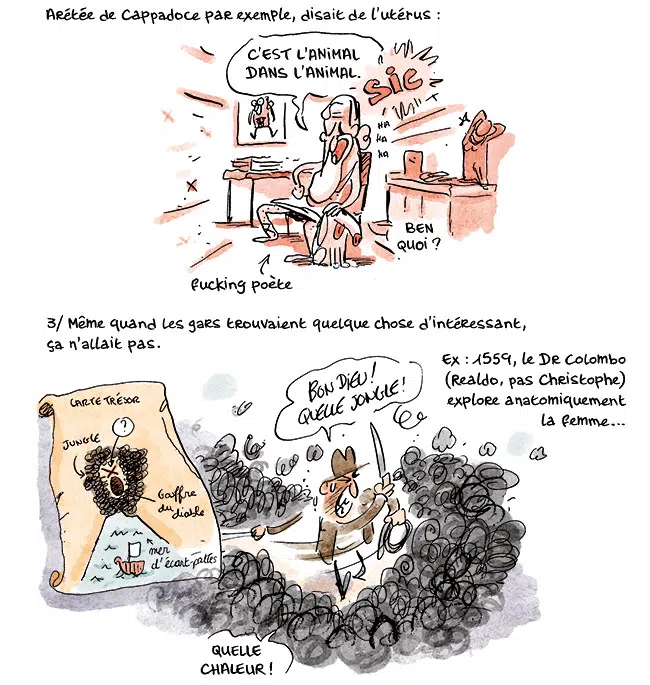 Arétée de Cappadoce par exemple, disait de l'utérus :
C'EST L'ANIMAL
DANS L'ANIMAL.
SIC
HA
HA
HA
BEN
QUOI ?
fucking poète
3/ Même quand les gars trouvaient quelque chose d'intéressant,
ça n'allait pas.
Ex : 1559, le Dr Colombo
(Realdo, pas Christophe)
explore anatomiquement
la femme...
CARTE TRÉSOR
?
JUNGLE
Gouffre
du
diable
mer
d'écart-pattes
BON DIEU !
QUELLE JONGLE !
QUELLE
CHALEUR !